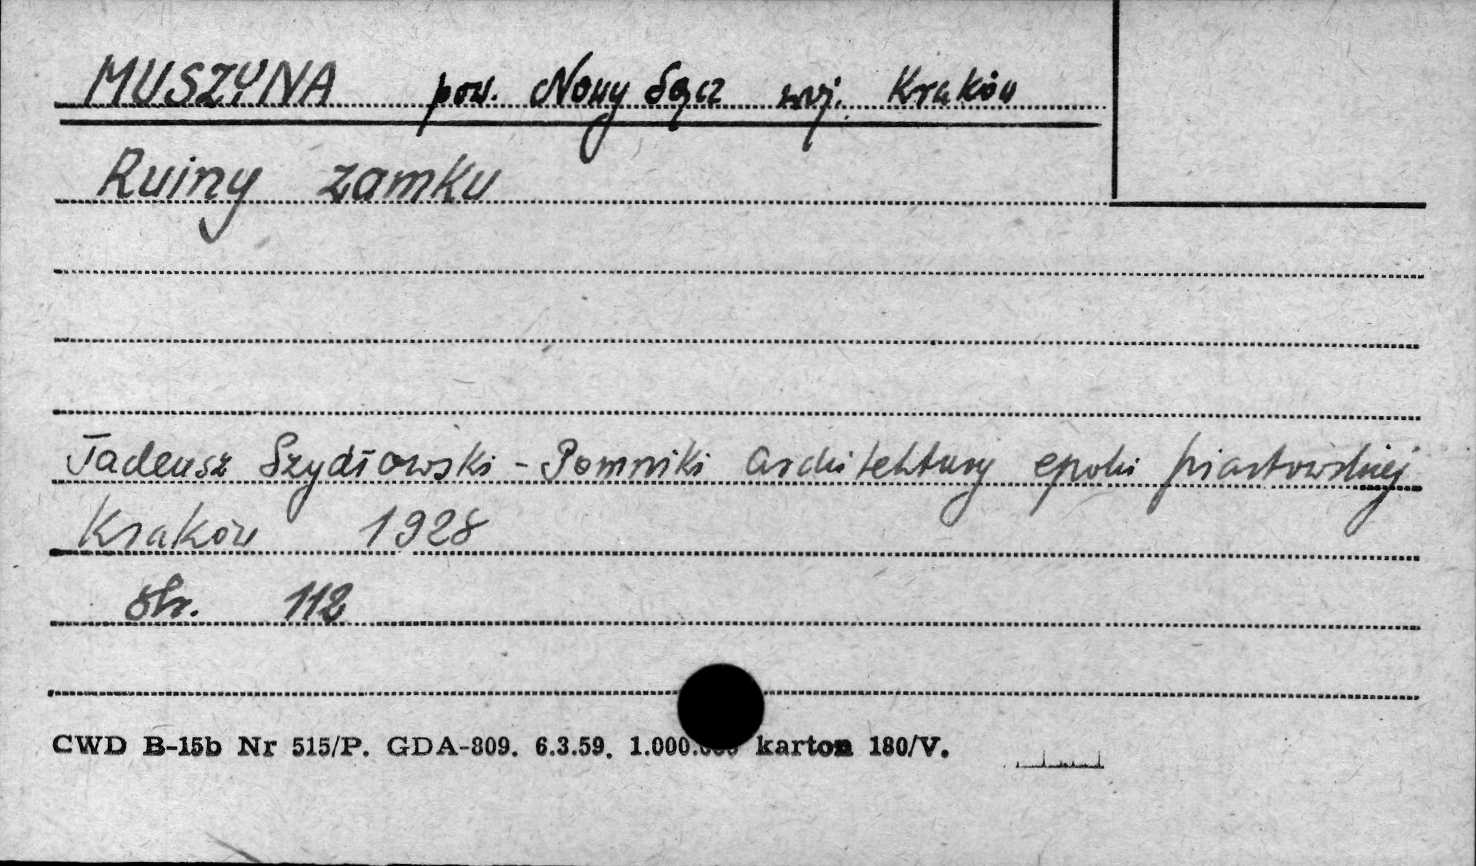 MUSZYNA pow. Nowy Sącz woj. Kraków
Ruiny zamku
Tadeusz Szydłowski - Pomniki architektury epoki piastowskiej
Kraków 1928
str. 112
CWD B-15b Nr 515/P. GDA-809. 6.3.59. 1.000.000 karton 180/V.